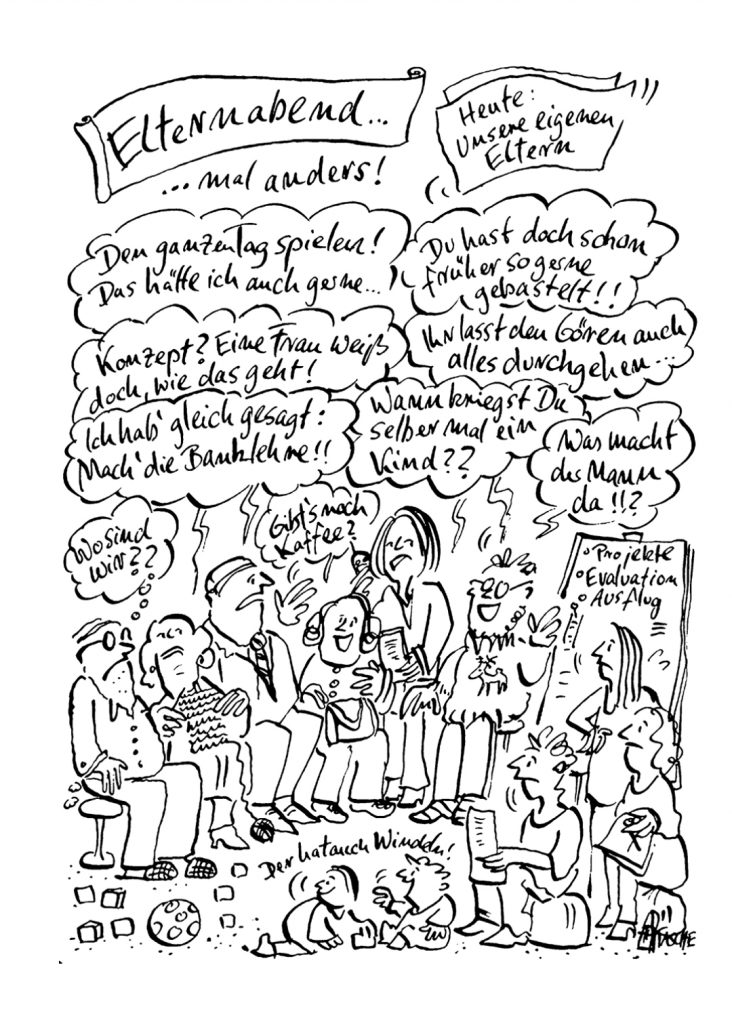 Elternabend...
...mal anders!
Heute:
Unsere eigenen
Eltern
Den ganzen Tag spielen!
Das hätte ich auch gerne...
Du hast doch schon
früher so gerne
gebastelt!!
Konzept? Eine Frau weiß
doch, wie das geht!
Ihr lasst den Gören auch
alles durchgehen...
Ich hab' gleich gesagt:
Mach' die Banklehre!!
Wann kriegst Du
selber mal ein
Kind??
Was macht
der Mann
da!!?
Wo sind
wir??
Gibt's noch
Kaffee?
Projekte
Evaluation
Ausflug
Der hat auch Winddln!